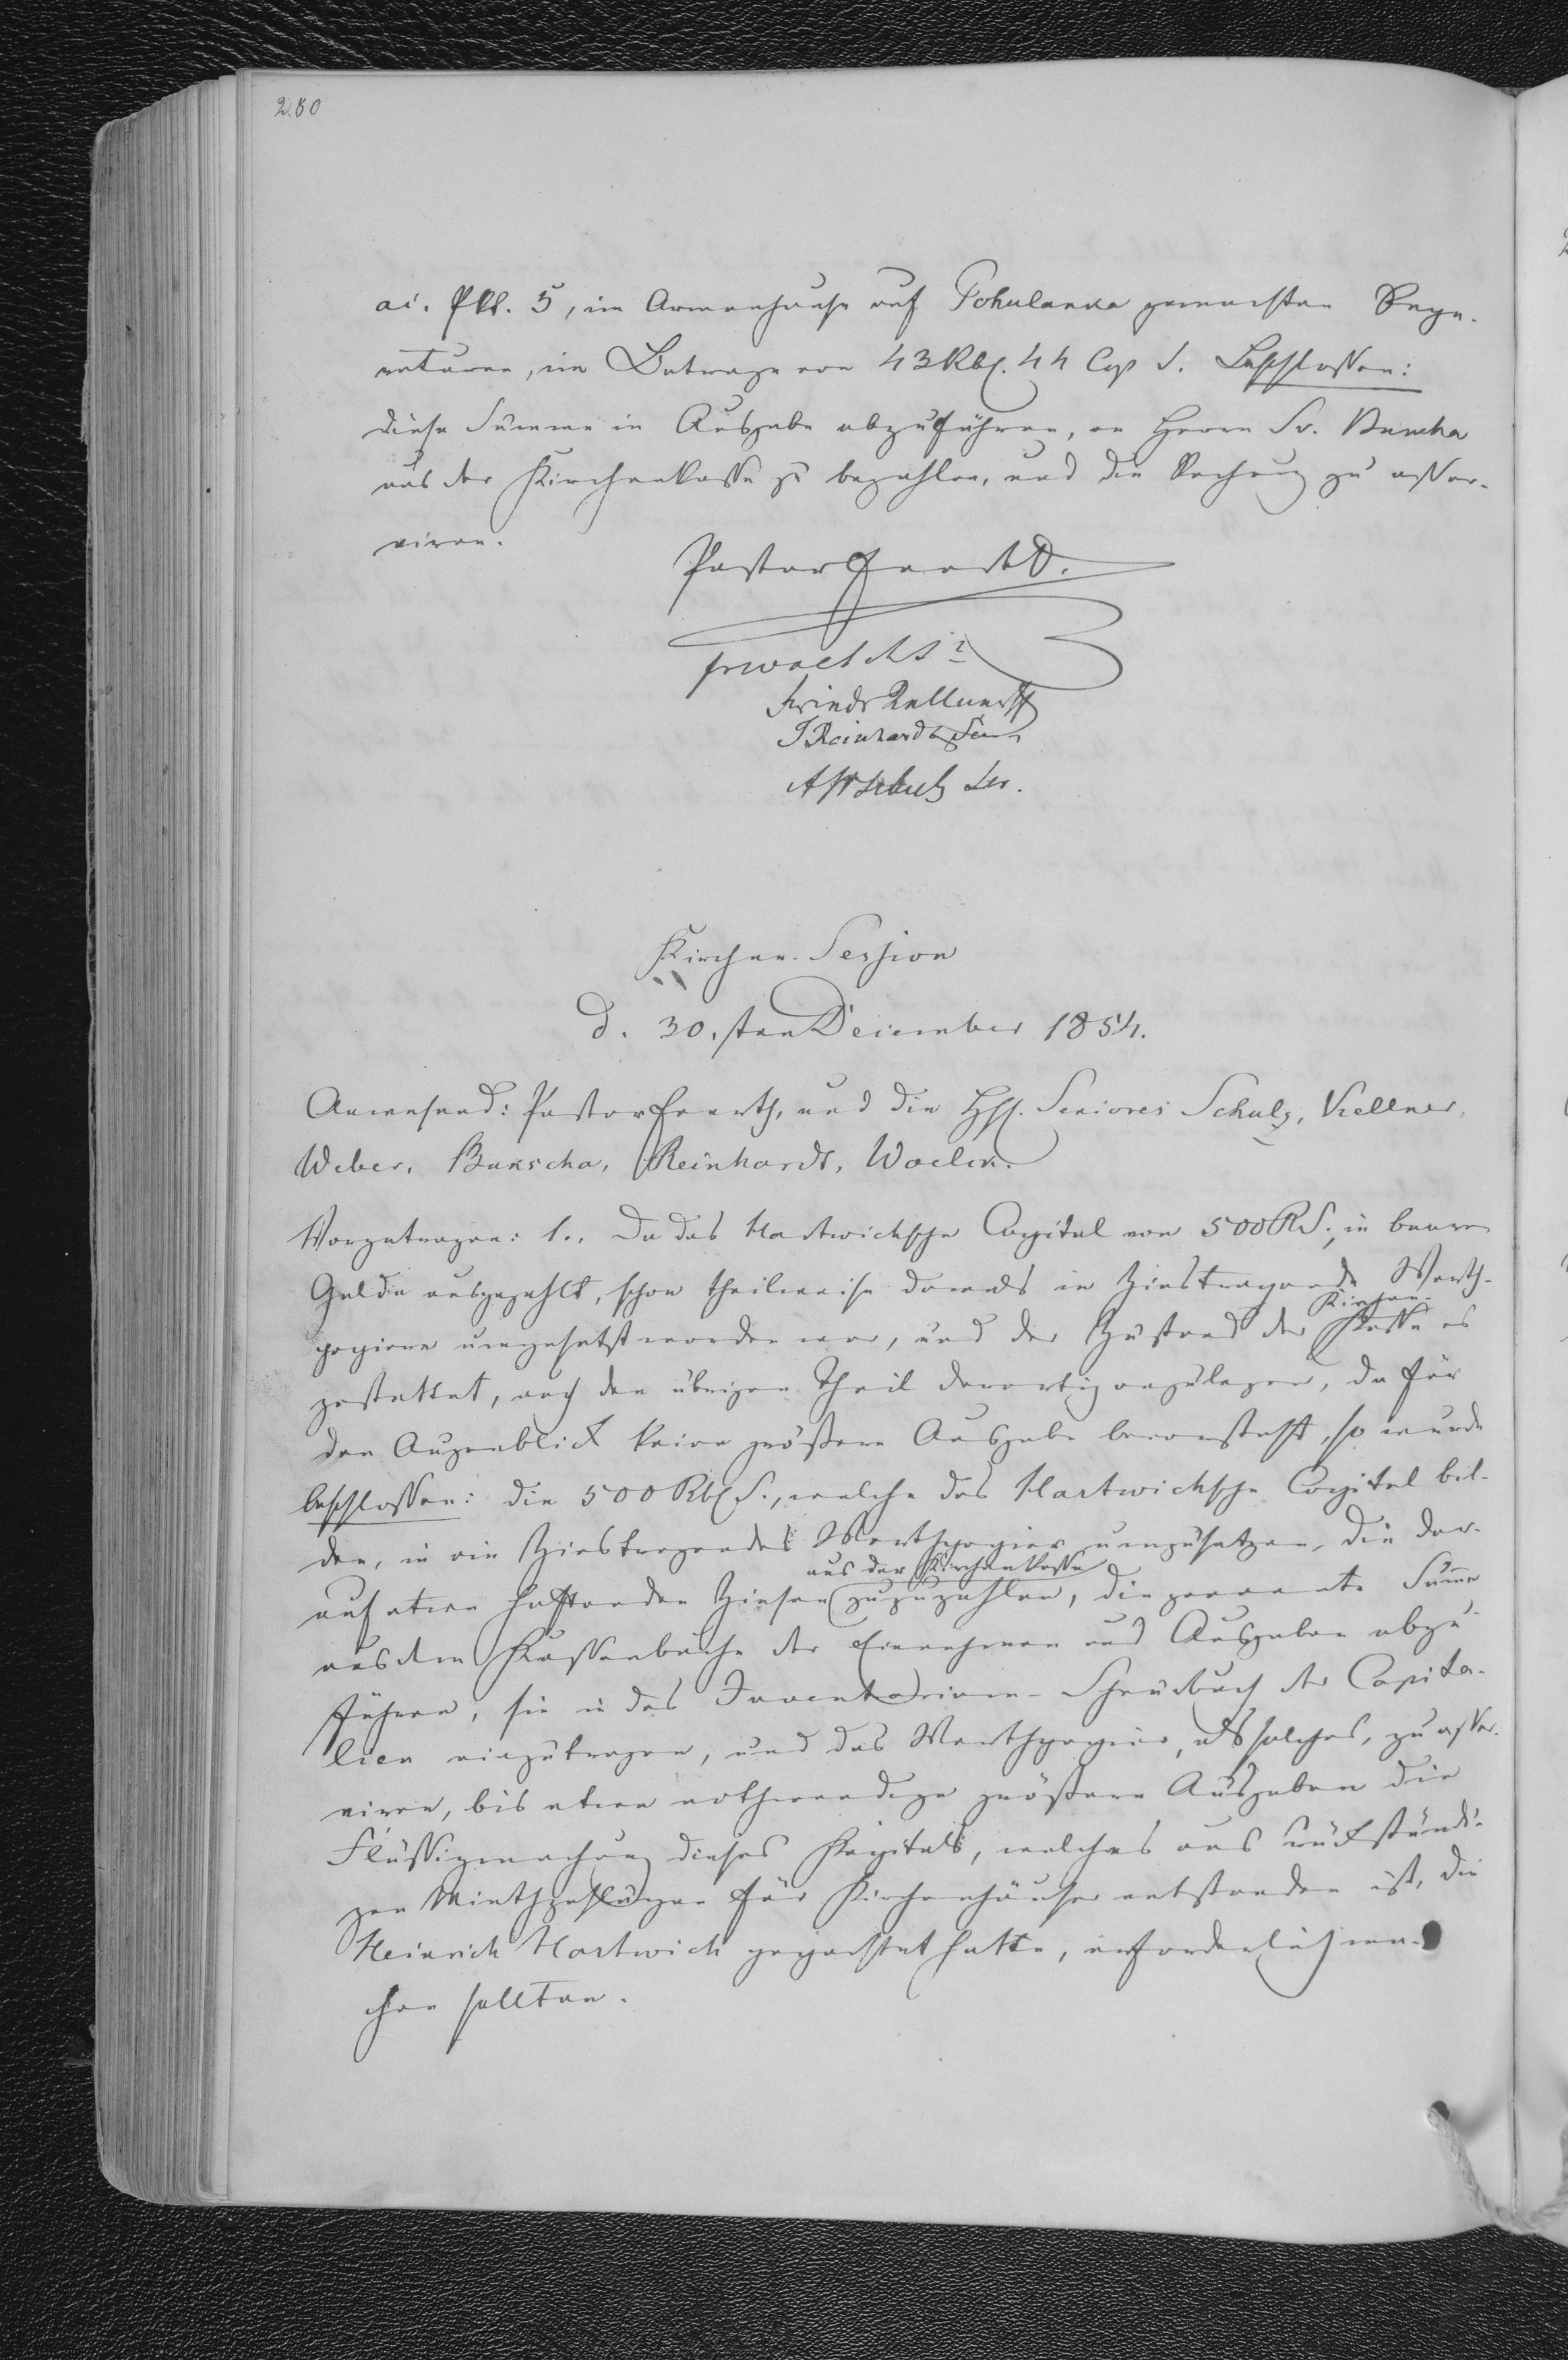 280
ai. Pkt. 5, im Armenhause auf Pohulanka gemachten Repa-
raturen, im Betrage von 43 Rbl. 44 Cop S. Beschlossen:
diese Summe in Ausgabe abzuführen, an Herrn Sr.
aus der Kirchenkasse zu bezahlen, und die Rechnung zu asser-
viren.
Pastor
Friedr Kellner
J Reinhardt Sen
Schulz Sen.
Kirchen-Session
d. 30. sten December 1854.
Anwesend: Pastor und die HH. Seniores Schulz, Kellner,
Weber, Bukscha, Reinhardt, Woelck.
Vorgetragen: 1., Da das Hartwichsche Capital von 500 RS., in baarem
Gelde ausgezahlt, schon theilweise damals in Zinstragende Werth-
papiere umgesetzt worden war, und der Zustand der Kirchen-Kasse es
gestattet, auch den übrigen Theil derartig anzulegen, da für
den Augenblick keine größere Ausgabe bevorsteht, so wurde
beschlossen: die 500 Rbl S., welche das Hartwichsche Capital bil-
den, in ein Zinstragendes Werthpapier umzusetzen, die dar-
auf etwa haftenden Zinsen aus der Kirchenkasse zuzuzahlen, die genannte Summe
aus dem Kassenbuche der Einnahmen und Ausgaben abzu-
führen, sie in das Inventarium-Schnurbuch der Capita-
lien einzutragen, und das Werthpapier, als solches, zu asser-
viren, bis etwa nothwendige größere Ausgaben die
Flüssigmachung dieses Kapitals, welches aus rückständi-
gen Miethzahlungen für Kirchenhäuser entstanden ist, die
Heinrich Hartwich gepachtet hatte, erforderlich ma-
chen sollten.